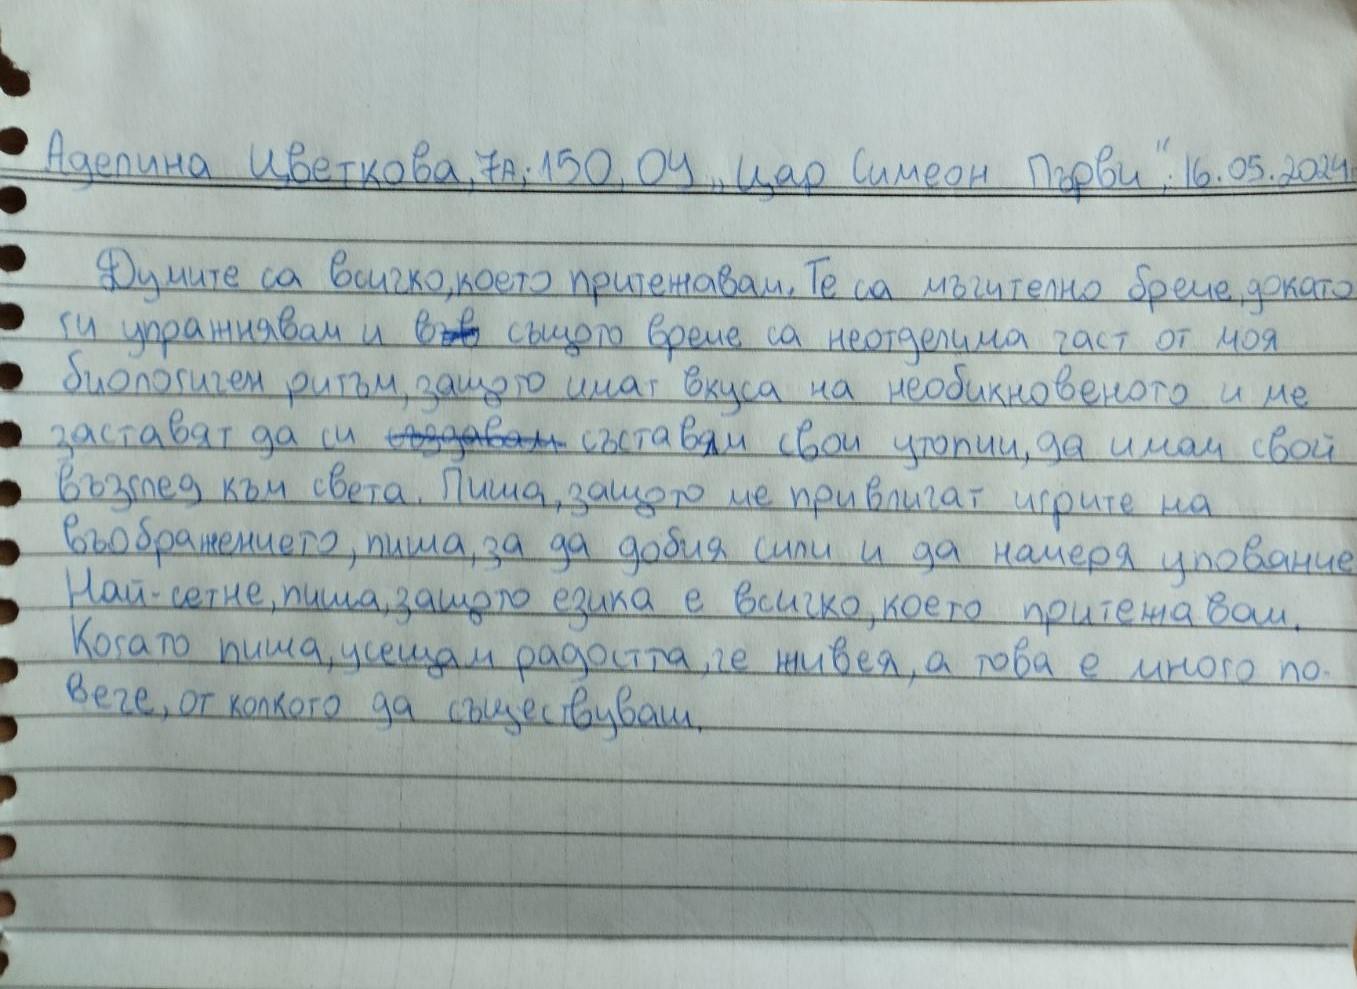 Аделина Цветкова, 7А; 150. ОУ „Цар Симеон Първи"; 16.05.2024
Думите са всичко, което притежавам. Те са мъчително бреме, докато
ги упражнявам и в също­то време са неотделима част от моя
биологичен ритъм, защото имат вкуса на необикновеното и ме
заставят да си съставям свои утопии, да имам свой
възглед към света. Пиша, защото ме привличат игрите на
въображението, пиша, за да добия сили и да намеря упование
Най-сетне, пиша, защото езика е всичко, което притежавам.
Когато пиша, усещам радостта, че живея, а това е много по-
вече, от колкото да съществуваш.